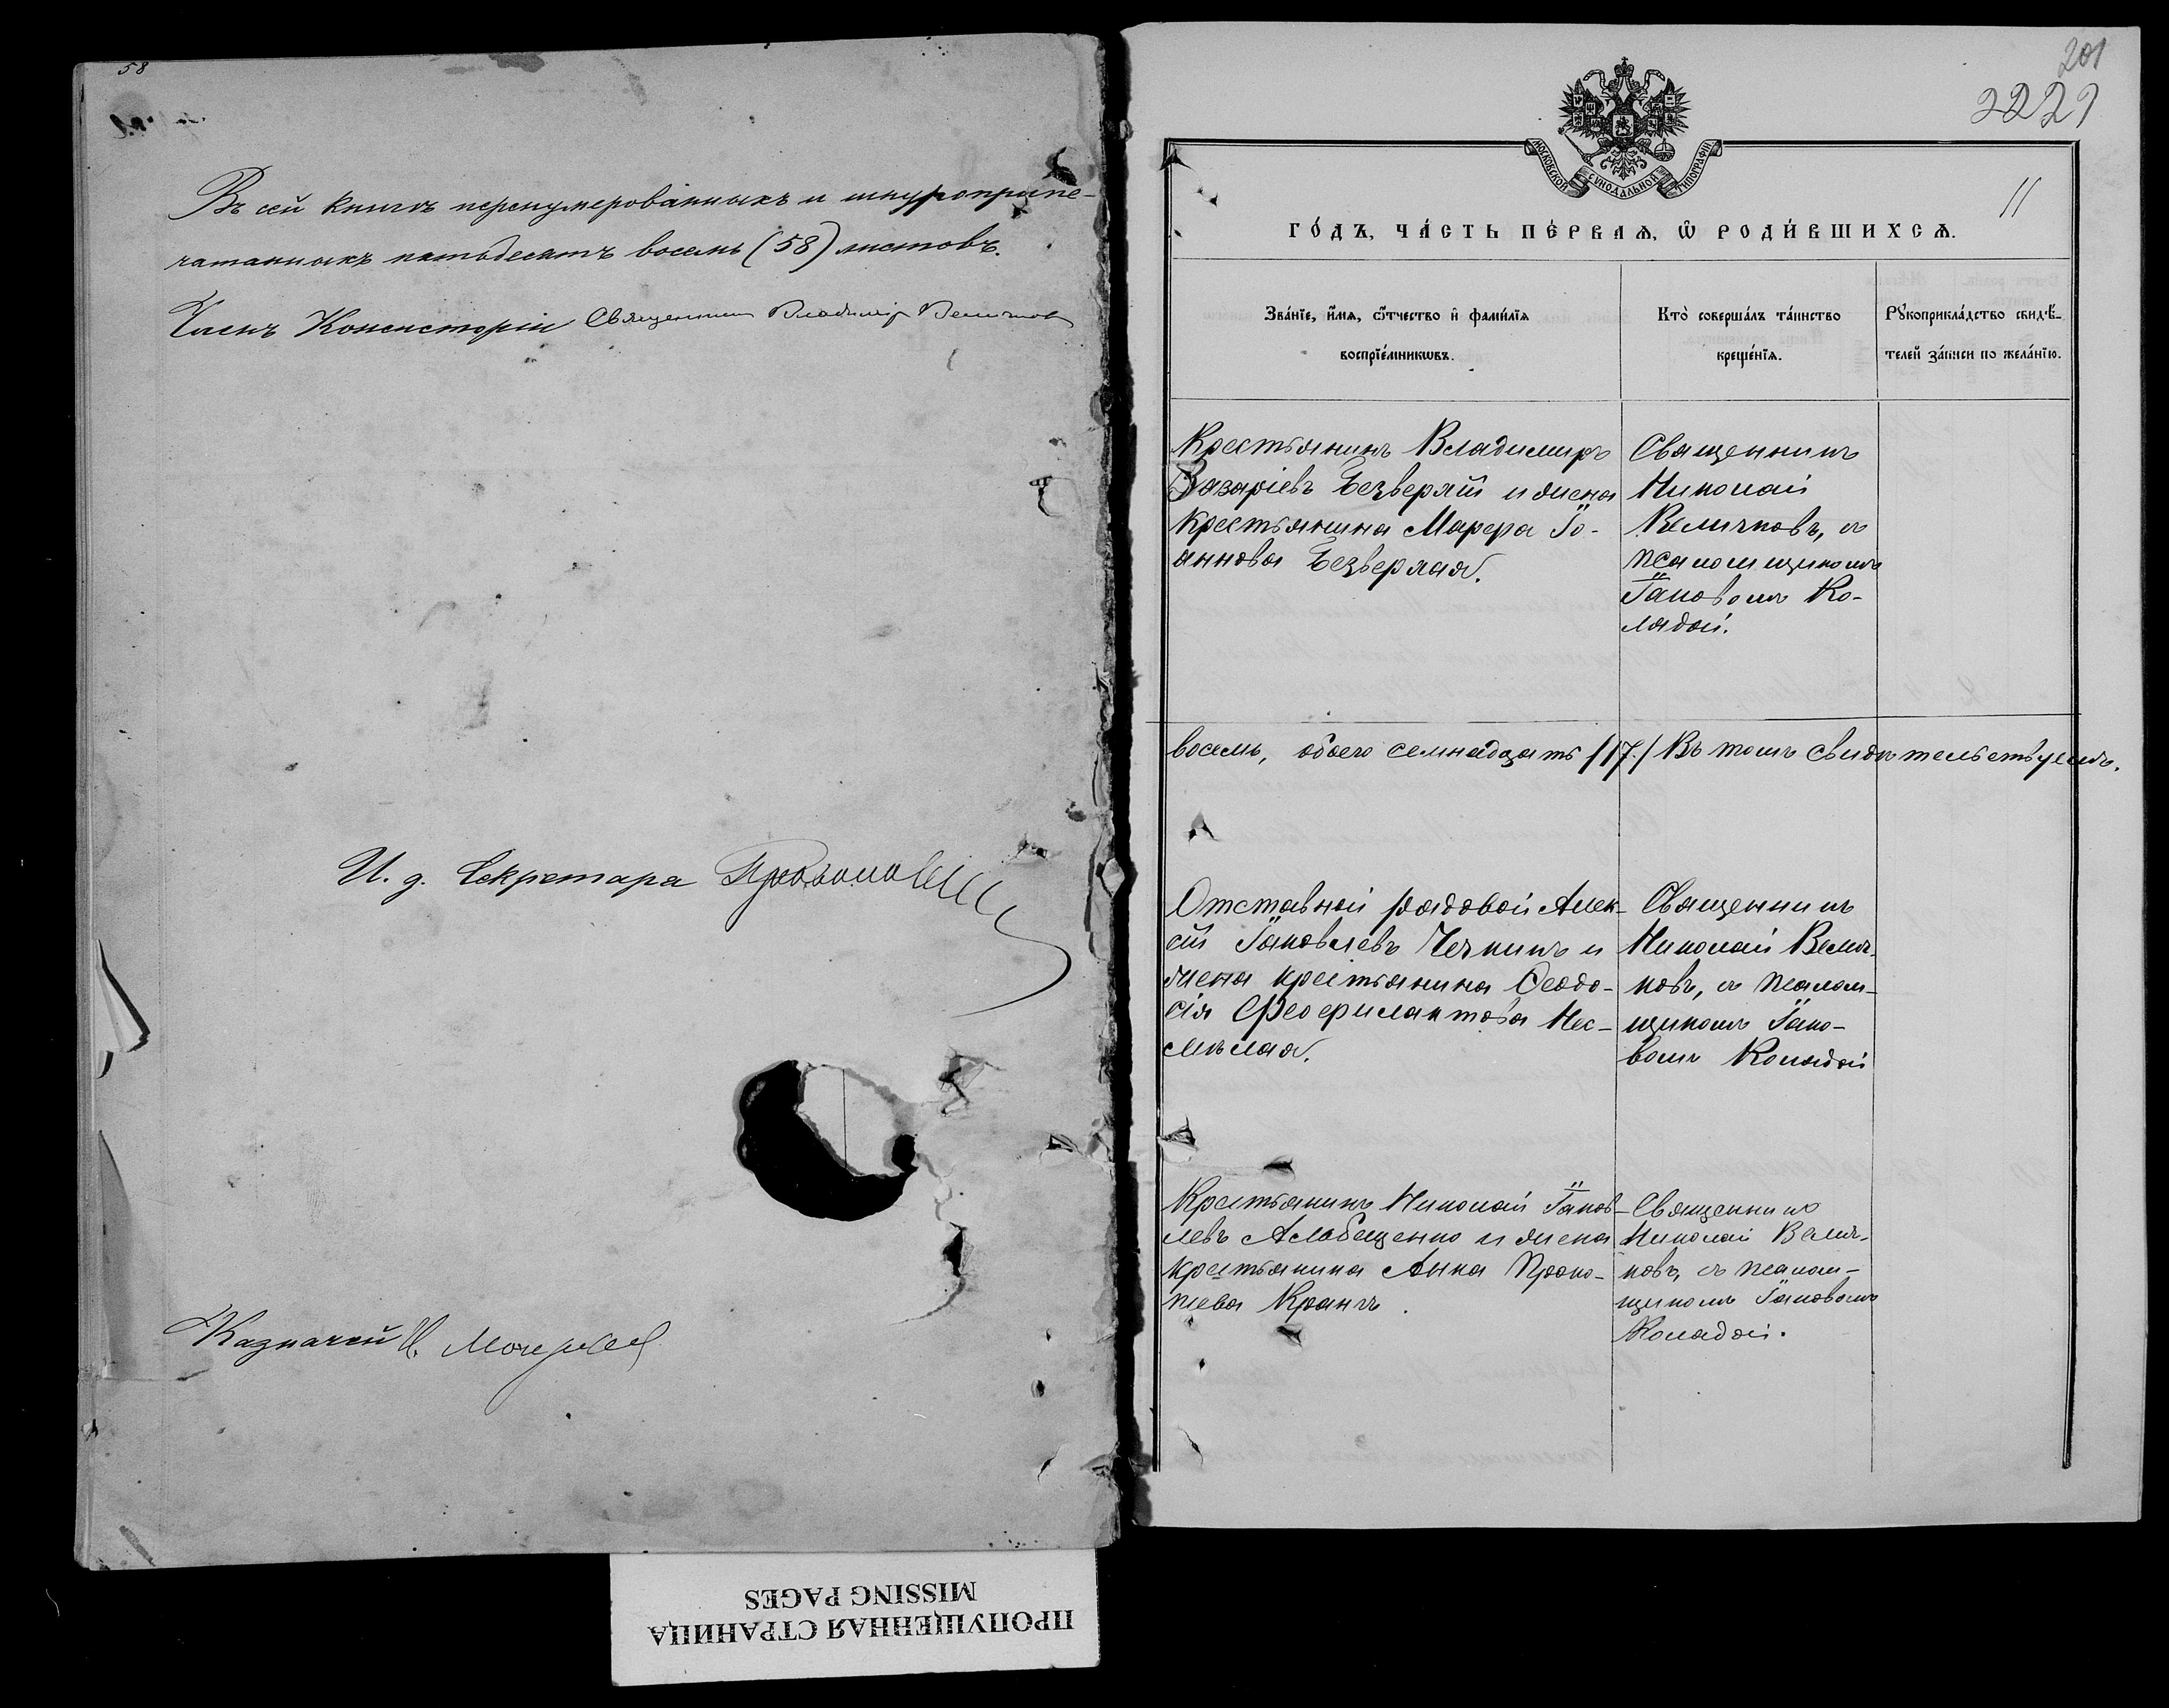 58
Въ сей книгѣ перенумерованныхъ и шнуроприпе-
чатанныхъ пятьдесятъ восемь (58) листовъ.
Членъ Консисторіи Священникъ Владиміръ Величковъ
И. д. Секретаря
Казначей
ПРОПУЩЕННАЯ СТРАНИЦА
MISSING PAGES
201
2229
11
МОСКОВСКОЙ СѴНОДАЛЬНОЙ ТИПОГРАФІИ
ГО́ДЪ, ЧА́СТЬ ПЕ́РВАѦ, Ѿ РОДИ́ВШИХСѦ.
Зва́нїе, и҆́мѧ, ѻ҆́тчество и҆ фами́лїѧ
воспрїе́мникѡвъ.
Кто̀ соверша́лъ та́инство
креще́нїѧ.
Рꙋкоприкла́дство свидѣ́-
телей за́писи по жела́нїю.
Крестьянинъ Владимиръ
Азаріевъ Безверхій и жена
крестьянина Марѳа Іо-
аннова Безверхая.
Священникъ
Николай
Величковъ, съ
псаломщикомъ
Іаковомъ Ко-
лядой.
восемь, обоего семнадцать /17./ Въ томъ свидѣтельствуемъ.
Отставной рядовой Алек-
сій Іаковлевъ Чечкинъ и
жена крестьянина Ѳеодо-
сія Феофилактова Нес-
мѣлая.
Священникъ
Николай Велич-
ковъ, съ псалом-
щикомъ Іако-
вомъ Колядой
Крестьянинъ Николай Іаков-
левъ Слабещенко и жена
крестьянина Анна Проко-
піева Кранъ.
Священникъ
Николай Велич-
ковъ, съ псалом-
щикомъ Іаковомъ
Колядой.